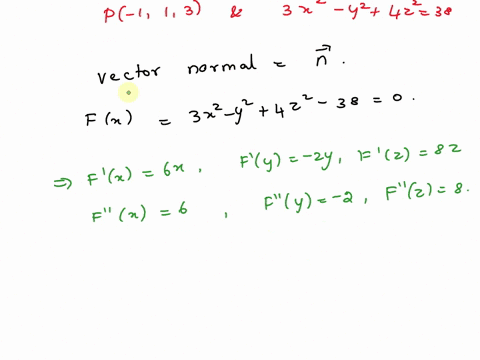 P(-1, 1, 3) & 3x² - y² + 4z² = 38
vector normal = n⃗.
F(x) = 3x² - y² + 4z² - 38 = 0.
⇒ F'(x) = 6x, F'(y) = -2y, F'(z) = 8z
F''(x) = 6, F''(y) = -2, F''(z) = 8.